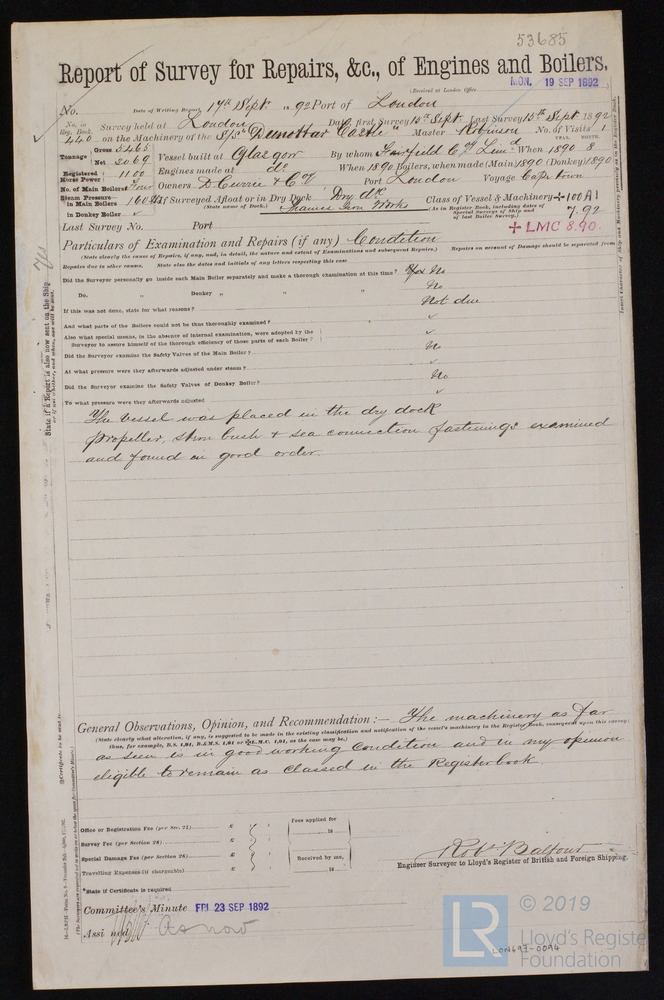 53685
Report of Survey for Repairs, &c., of Engines and Boilers.
(Received at London Office
MON. 19 SEP 1892
No. Date of Writing Report 17th Septr 1892 Port of London
No. in Reg. Book. 440 Survey held at London Date, first Survey 15th Septr Last Survey 15th Septr 1892
on the Machinery of the S/S "Dunottar Castle" Master Robinson No. of Visits 1
YEAR. MONTH.
Tonnage Gross 5465 Net 3069 Vessel built at Glasgow By whom Fairfield Coy Limd When 1890 8
Registered Horse Power 1100 Engines made at do. When 1890 Boilers, when made (Main) 1890 (Donkey) 1890
No. of Main Boilers Four Owners D. Currie & Coy Port London Voyage Cape Town
Steam Pressure in Main Boilers 160 lbs If Surveyed Afloat or in Dry Dock Dry dk Class of Vessel & Machinery +100A1
(State name of Dock.) Thames Iron Works (As in Register Book, including dates of Special Surveys of Ship and of last Boiler Survey.) 7.92
in Donkey Boiler
+ LMC 8.90
Last Survey No. Port
Particulars of Examination and Repairs (if any) Condition
(State clearly the cause of Repairs, if any, and, in detail, the nature and extent of Examinations and subsequent Repairs.) Repairs on account of Damage should be separated from
Repairs due to other causes. State also the dates and initials of any letters respecting this case
Did the Surveyor personally go inside each Main Boiler separately and make a thorough examination at this time? No
Do. " Donkey " " " No
If this was not done, state for what reasons? Not due
And what parts of the Boilers could not be thoroughly examined?
Also what special means, in the absence of internal examination, were adopted by the
Surveyor to assure himself of the thorough efficiency of those parts of each Boiler?
Did the Surveyor examine the Safety Valves of the Main Boiler? No
At what pressure were they afterwards adjusted under steam?
Did the Surveyor examine the Safety Valves of Donkey Boiler? No
To what pressure were they afterwards adjusted
The vessel was placed in the dry dock
propeller, stern bush & sea connection fastenings examined
and found in good order.
State if a Report is also now sent on the Ship. Yes
General Observations, Opinion, and Recommendation:— The machinery as far
(State clearly what alteration, if any, is suggested to be made in the existing classification and notification of the vessel's machinery in the Register Book, consequent upon this survey;
thus, for example, B.S. 1,91, B.&M.S. 1,91 or +L.M.C. 1,91, as the case may be.)
as seen is in good working condition and in my opinion
eligible to remain as classed in the Register book
Office or Registration Fee (per Sec. 27) £ Fees applied for
Survey Fee (per Section 28) £ 18
Special Damage Fee (per Section 28) £ Received by me,
Travelling Expenses (if chargeable) £ 18
Robt Balfour
Engineer Surveyor to Lloyd's Register of British and Foreign Shipping.
*State if Certificate is required
Committee's Minute FRI 23 SEP 1892
Assigned As now
LR
© 2019
Lloyd's Register
Foundation
LON693-0094